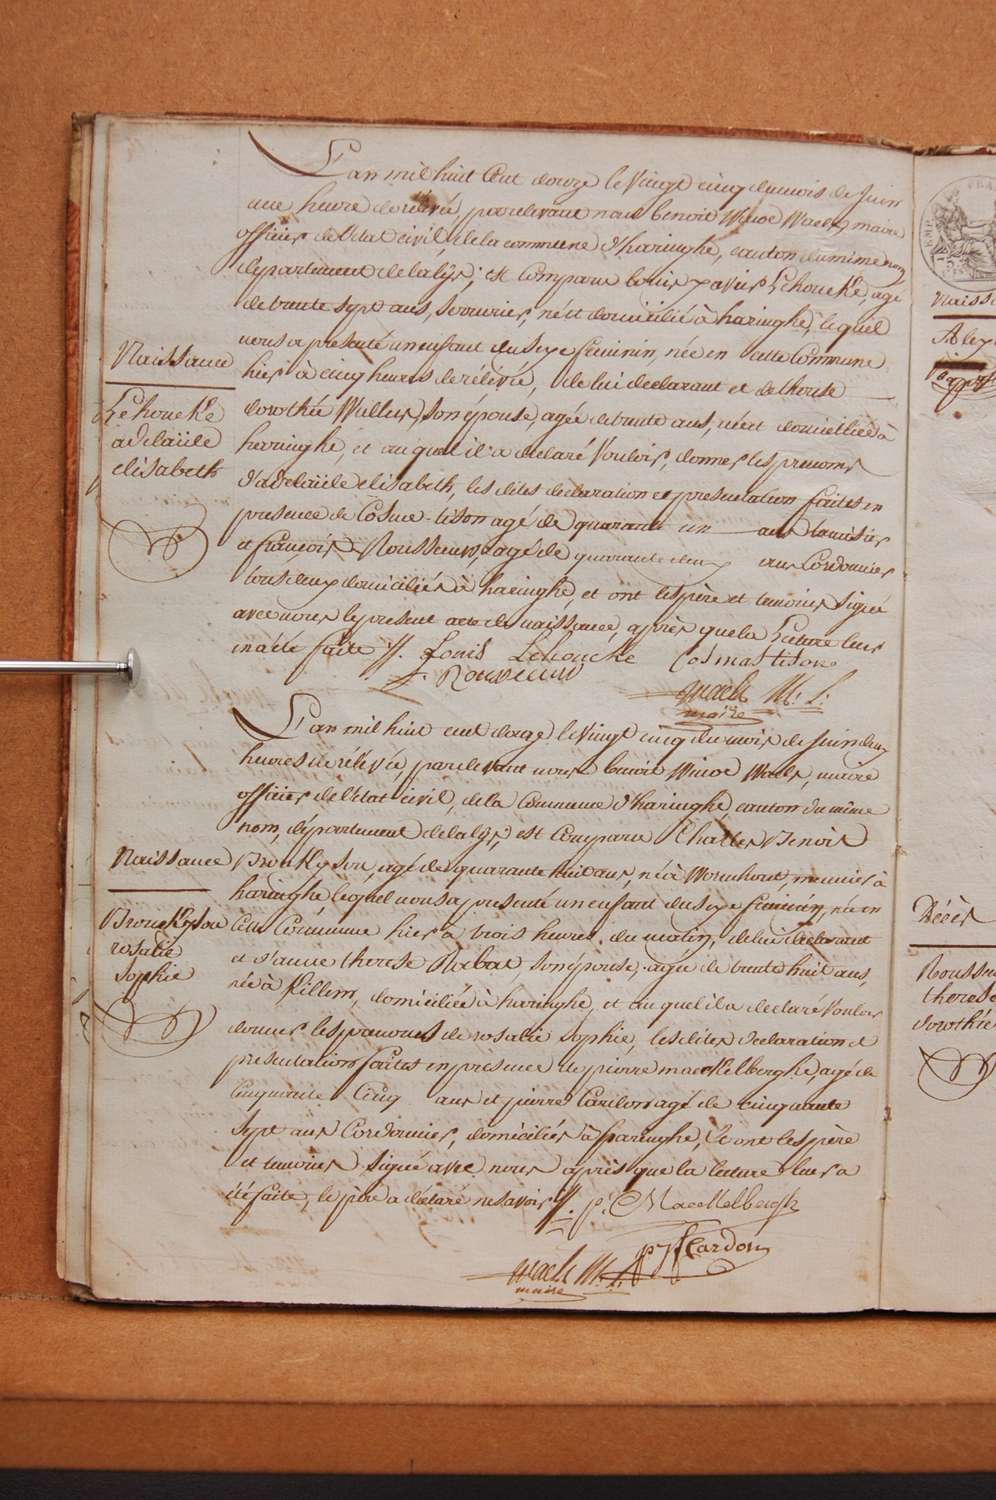 L'an mil huit Cent douze le Vingt cinq du mois de Juin
une heure de rélévée, pardevant nous benoit Winoc Waels, maire
officier de l'etat civil, de la commune d'haringhe, canton du même nom
département de la lÿs; est Comparu louis xavier Lehoucke, agé
de trente sept ans, serrurier, né et domicilié à haringhe, lequel
nous a présenté un enfant du sexe feminin, née en cette Commune
hier à cinq heures de rélévée, de lui declarant et de therese
Naissance
Lehoucke
adelaïde
elisabeth
dorothée Wullus, son épouse, agée de trente ans, née et domiciliée à
haringhe, et au quel il a declaré Vouloir, donner les prenoms
d'adelaïde elisabeth, les dites declaration et presentation faites en
presence de Cosme tison agé de quarante un ans
et françois Rousseeuw, agé de quarante deux ans Cordonnier
tous deux domiciliés à haringhe, et ont les père et temoins signé
avec nous le present acte de naissance, après que la Lecture leur
en à été faite //. Louis Lehoucke Cosmas tison
f. Rousseeuw
Waels M. L.
maire
L'an mil huit cent douze le Vingt cinq du mois de Juin deux
heures de rélévée, pardevant nous benoit Winoc Waels, maire
officier de l'etat civil, de la Commune d'haringhe, canton du même
nom, département de la lÿs, est Comparu Charles Benoit
Naissance
Brouckyson, agé de quarante huit ans, né à Wormhout, meunier à
haringhe lequel nous a présenté un enfant du sexe feminin, née en
Brouckyson
rosalie
sophie
cette Commune hier à trois heures du matin, de lui declarant
et d'anne therese Rabat son épouse, agée de trente huit ans,
née à Killem, domiciliée à haringhe, et au quel il a declaré Vouloir
donner les prenoms de rosalie sophie, les dites declaration et
presentation faites en presence de pierre maeckelberghe, agé de
Cinquante Cinq ans et pierre Cardon agé de cinquante
sept ans Cordonnier, domiciliés à haringhe, et ont les père
et temoins signé avec nous après que la lecture leur a
été faite, le père a déclaré ne savoir //. p. Maeckelbergh
pJ Cardon
Waels M. L.
maire
Naiss
Alex
Décès
Rouss
therese
dorothée